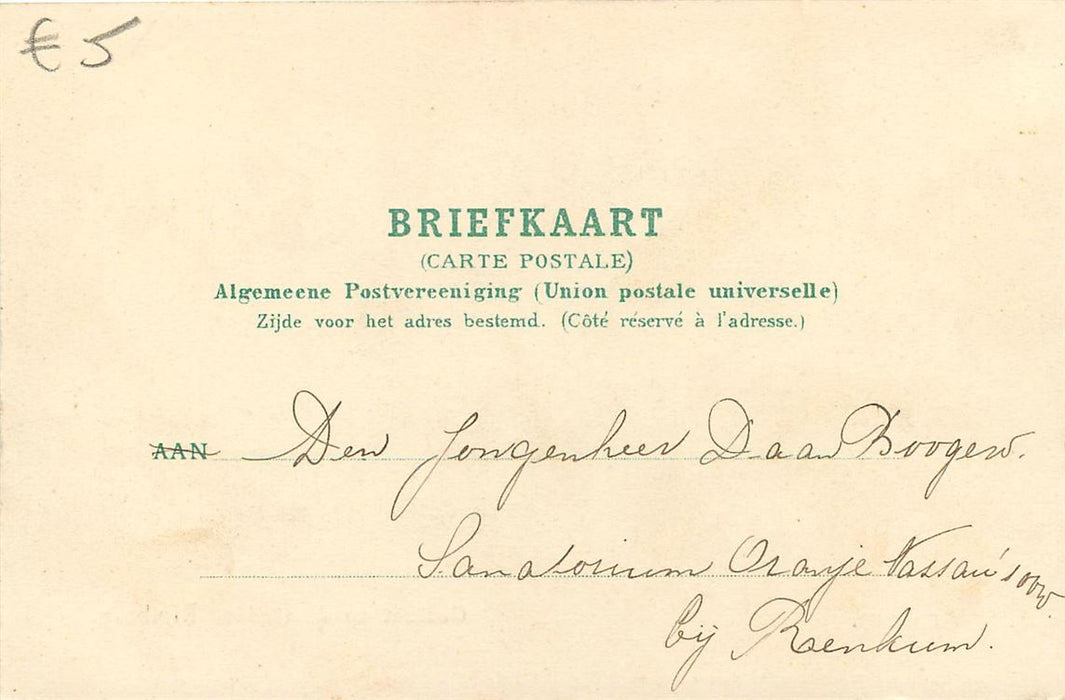 €5
BRIEFKAART
(CARTE POSTALE)
Algemeene Postvereeniging (Union postale universelle)
Zijde voor het adres bestemd. (Côté réservé à l'adresse.)
AAN Den Jongenheer Daan
Sanatorium Oranje Nassau's oord
bij Renkum.